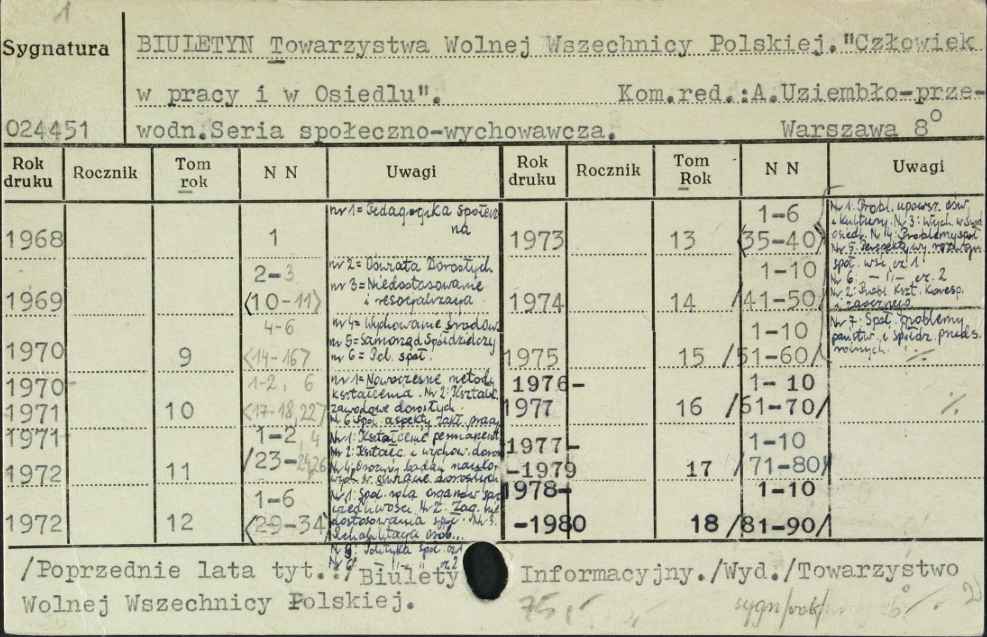 1
Sygnatura
BIULETYN Towarzystwa Wolnej Wszechnicy Polskiej."Człowiek
w pracy i w Osiedlu". Kom.red.:A.Uziembło-prze-
024451 wodn.Seria społeczno-wychowawcza. Warszawa 8°
Rok druku Rocznik Tom rok N N Uwagi Rok druku Rocznik Tom Rok N N Uwagi
1968 1 nr 1 = Pedagogika społeczna
1969 2-3 <10-11> nr 2 = Oświata Dorosłych
nr 3 = Niedostosowanie
i resocjalizacja
1970 9 4-6 <14-16> nr 4 = Wychowanie środow.
nr 5 = Samorząd Spółdzielczy
nr 6 = Pol. społ.
1970- 1971 10 1-2, 6 <17-18, 22> nr 1 = Nowoczesne metody
kształcenia. Nr 2: Kształc.
zawodowe dorosłych.
Nr 6 Społ. aspekty zakł. pracy
1971 1972 11 1-2, 4 /23-24,26 Nr 1: Kształcenie permanent.
Nr 2: Kształc. i wychow. doros.
1972 12 1-6 <29-34> Nr 1: Społ. rola organów spra-
wiedliwości. Nr 2: Zag. nie
dostosowania społ. Nr 3.
Rehabilitacja osób...
Polityka społ. cz 1
cz 2
1973 13 1-6 <35-40> Nr 1: Probl. upowsz. ośw.
i kultury. Nr 3: Wych. w
osiedl. Nr 4: Problemy społ.
Nr 5. Perspektywy
społ. wsi, cz. 1
Nr 6. — II — cz. 2
1974 14 1-10 /41-50/ Nr 2: Probl. Kszt. Koresp.
i zaocznego
1975 15 1-10 /51-60/ Nr 7: Społ. problemy
państw. i spółdz. przeds.
rolnych
1976- 1977 16 1-10 /61-70/
1977- -1979 17 1-10 /71-80/
1978- -1980 18 1-10 /81-90/
/Poprzednie lata tyt.:/Biulety Informacyjny./Wyd./Towarzystwo
Wolnej Wszechnicy Polskiej.
75